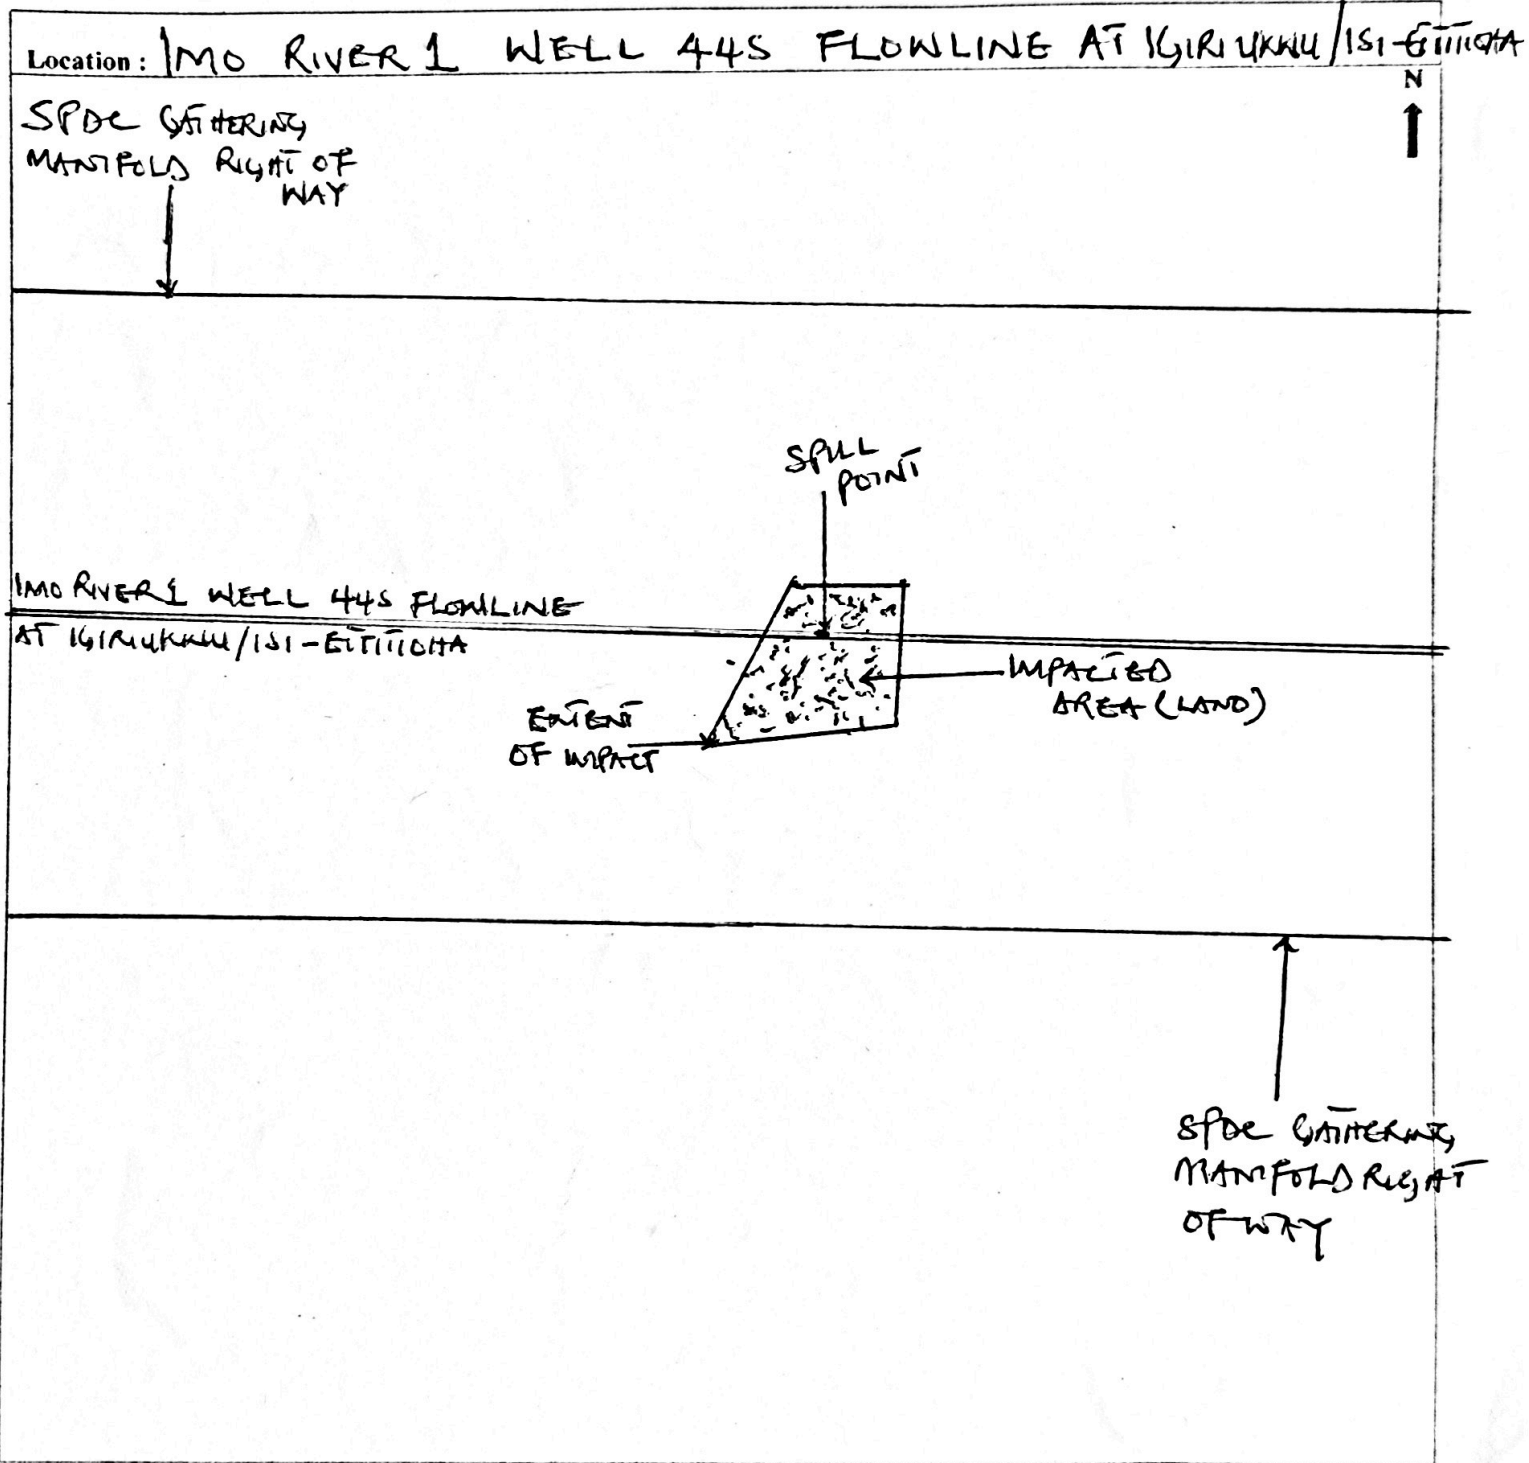 Location : IMO RIVER 1 WELL 44S FLOWLINE AT IGIRIUKWU/ISI-ETITIOHA
N
SPDC GATHERING
MANIFOLD RIGHT OF
WAY
SPILL
POINT
IMO RIVER 1 WELL 44S FLOWLINE
AT IGIRIUKWU/ISI-ETITIOHA
IMPACTED
AREA (LAND)
EXTENT
OF IMPACT
SPDC GATHERING
MANIFOLD RIGHT
OF WAY